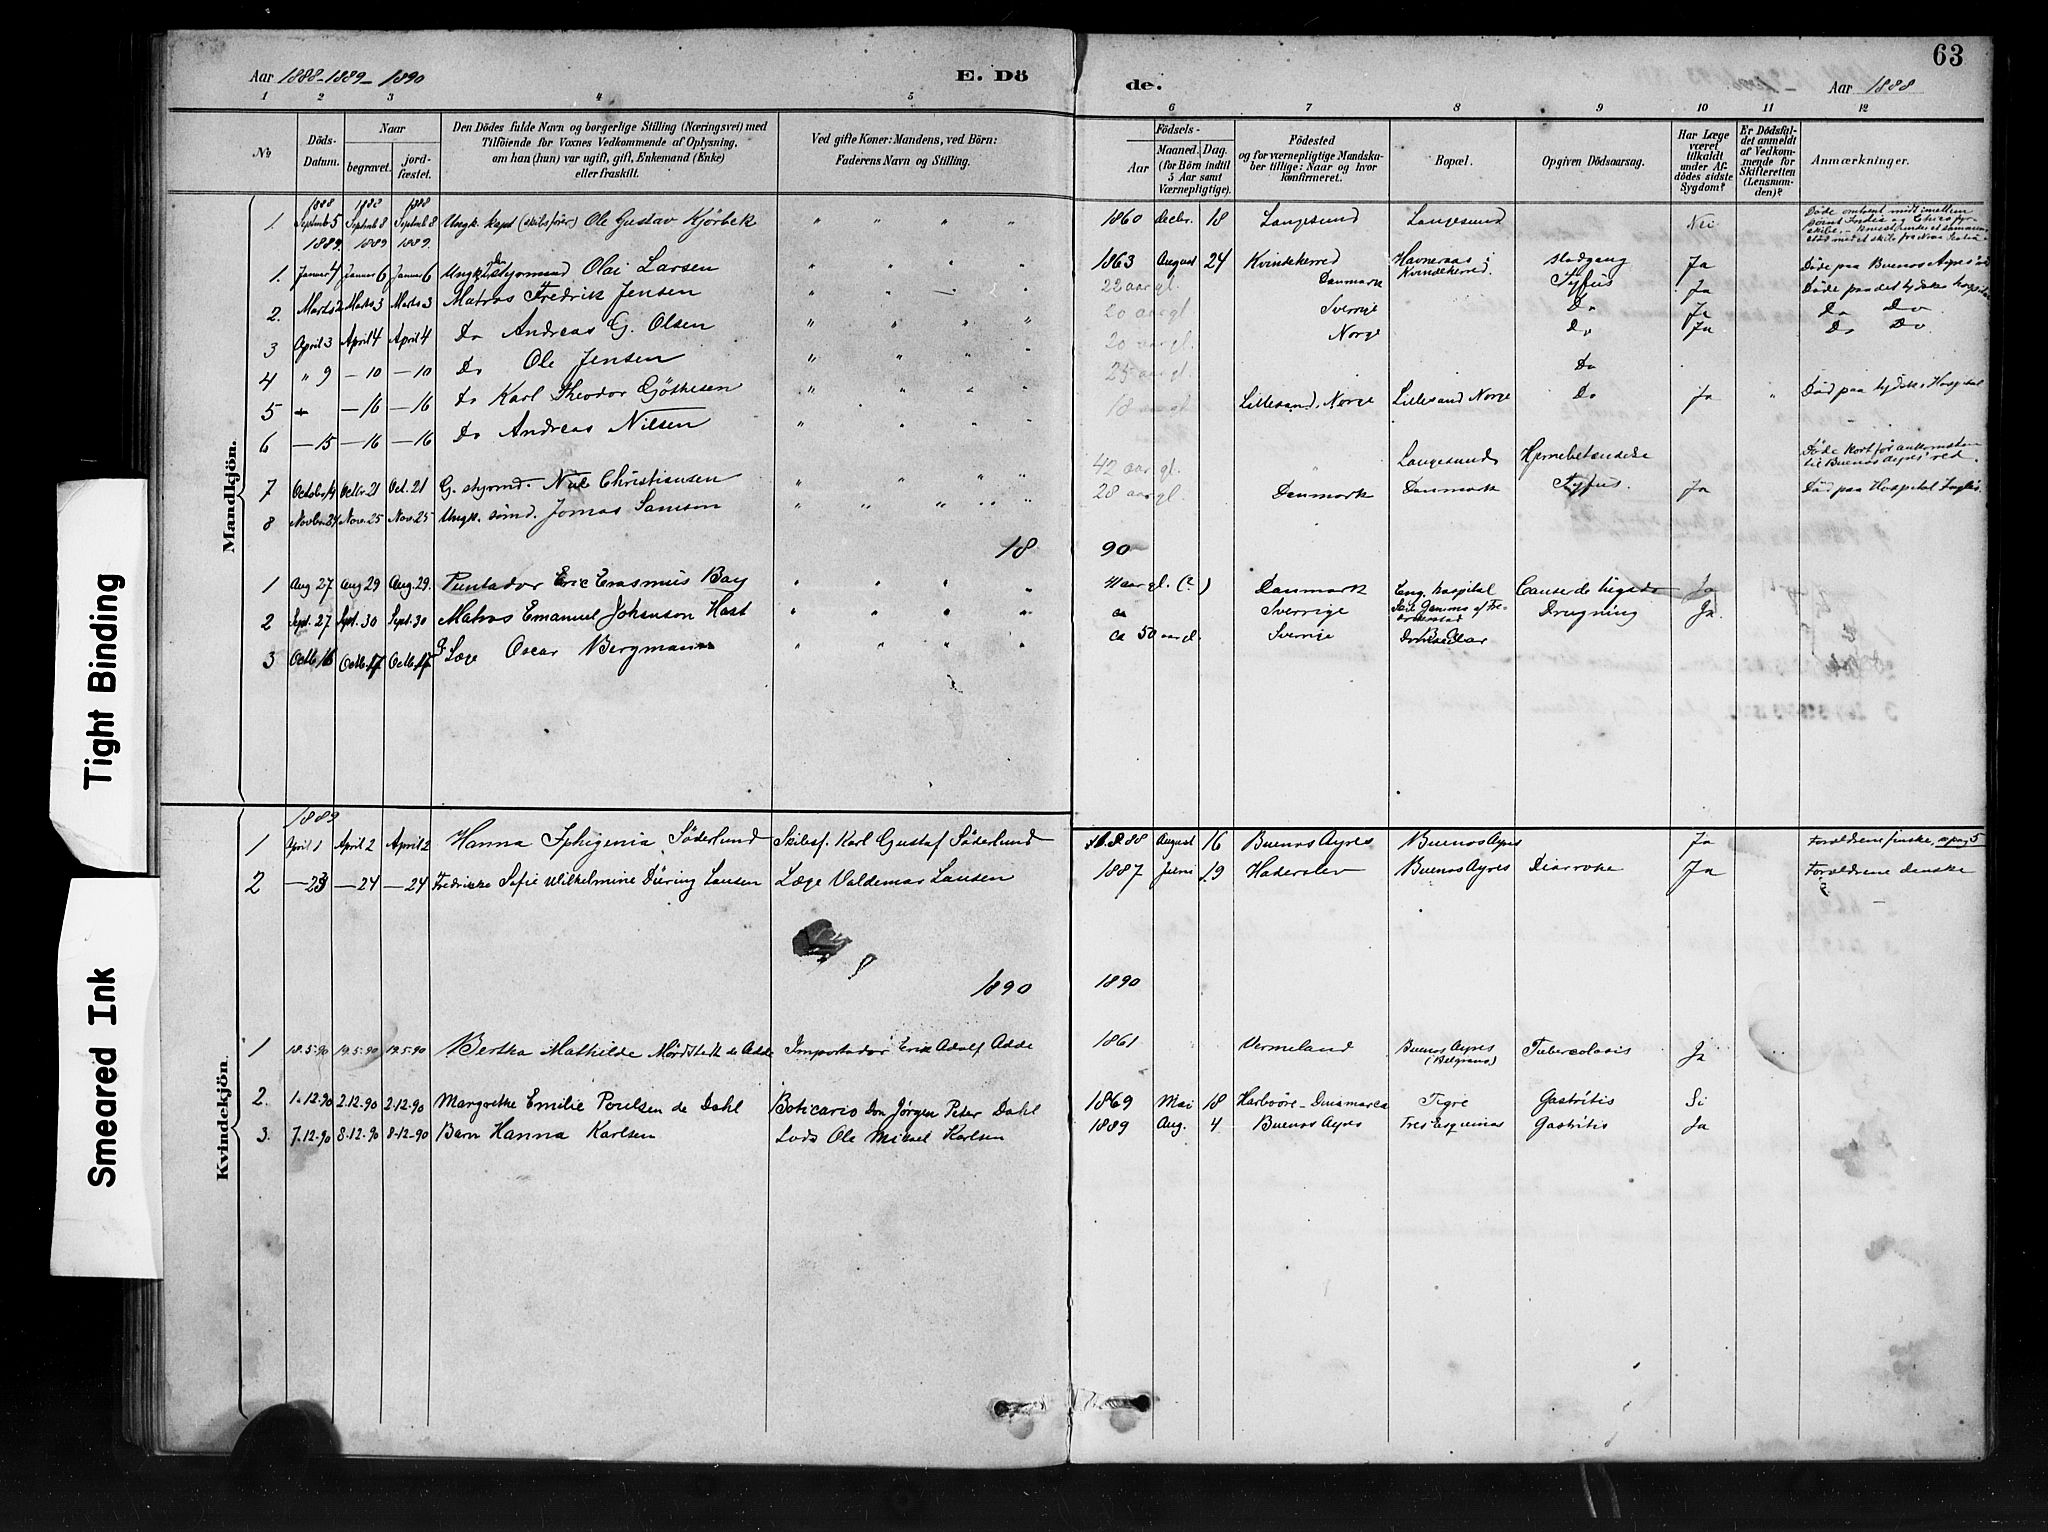 63
Aar 1888-1889-1890
E. Dö
de.
Aar 1888
1 2 3 4 5 6 7 8 9 10 11 12
No
Döds-Datum.
Naar
begravet.
jord-fæstet.
Den Dödes fulde Navn og borgerlige Stilling (Næringsvei) med
Tilföiende for Voxnes Vedkommende af Oplysning,
om han (hun) var ugift, gift, Enkemand (Enke)
eller fraskilt.
Ved gifte Koner: Mandens, ved Börn:
Faderens Navn og Stilling.
Födsels-
Aar
Maaned. Dag.
(for Börn indtil
5 Aar samt
Værnepligtige).
Födested
og for værnepligtige Mandska-
ber tillige: Naar og hvor
konfirmeret.
Bopæl.
Opgiven Dödsaarsag.
Har Læge
været
tilkaldt
under Af-
dödes sidste
Sygdom?
Er Dödsfal-
det anmeldt
af Vedkom-
mende for
Skifteretten
(Lensman-
den)?
Anmærkninger.
Mandkjön.
1888 1888 1888
1. Septmb 5 Septmb 8 Septmb 8 Ungk. kapt (skibsfører) Ole Gustav Kjörbek " " " " 1860 decbr. 18 Langesund Langesund Nei
1889. 1889 1889.
1. Januar 4 Januar 6 Januar 6 Ungk. styrmand Olai Larsen 1863 August 24 Kvindeherred Havneraas i Kvindeherred. sladgang Ja Døde paa Buenos Ayres' red
2. Marts 2 Marts 3 Marts 3 Matros Fredrik Jensen 22 aar gl. Danmark Tyfus Ja Døde paa det tydske hospital
3 April 3 April 4 April 4 Do Andreas G. Olsen 20 aar gl. Sverrige Do Ja Do Do
4 " 9 — 10 — 10 Do Ole Jensen 20 aar gl. Norge Do Ja Do Do
5 — 16 — 16 Do Karl Theodor Gøthesen 25 aar gl. Do
6 — 15 — 16 — 16 Do Andreas Nilsen 18 aar gl. Lillesand, Norge Lillesand Norge Do Ja " Død paa tydske Hospital
7 October 14 Octbr. 21 Oct. 21 G. styrmd. Nils Christiansen 42 aar gl. " Langesund Hjernebetændelse Døde kort før ankomsten
til Buenos Ayres' red.
8 Novbr. 24 Nov. 25 Nov. 25 Ungk. sømd. Jomas Samson 28 aar gl. Danmark Danmark Tyfus. Ja Død paa Hospital Ingles.
18 90
1 Aug 27 Aug 29 Aug. 29. Pintador Eric Erasmus Bay 41 aar gl. (?) Danmark Eng. hospital Ja
2 Sept. 27 Sept. 30 Sept. 30 Matros Emanuel Johanson Hast ca Sverrige Drugning Ja.
3 Octb. 16 Octb. 17 Octb. 17. G. Læge Oscar Bergmann ca 50 aar gl. Sverige
Kvindekjön.
1889
1 April 1 April 2 April 2 Hanna Iphigenia Söderlund Skibsf. Karl Gustaf Söderlund 1888 August 16 Buenos Ayres Buenos Ayres Ja Forældrene finske, pag 5
2 — 23 — 24 — 24 Fredrikke Sofie Wilhelmine Düring Lausen Læge Valdemar Lausen 1887 Juni 19 Haderslev Buenos Ayres Diarrohe Ja Forældrene danske
1890 1890
1 18.5.90 19.5.90 19.5.90 Bertha Mathilde Mördstedt de Adde Importador Erik Adolf Adde 1861 Vermeland Buenos Ayres (Belgrano) Tuberculosis Ja
2. 1.12.90 2.12.90 2.12.90 Margrethe Emilie Poulsen de Dahl Boticario Don Jørgen Peter Dahl 1869 Mai 18 Harboöre - Dinamarca Tigre Gastritis Si
3. 7.12.90 8.12.90 8.12.90 Barn Hanna Karlsen Lods Ole Mikael Karlsen 1889 Aug. 4 Buenos Ayres Tres esquinas Gastritis Ja
Tight Binding
Smeared Ink